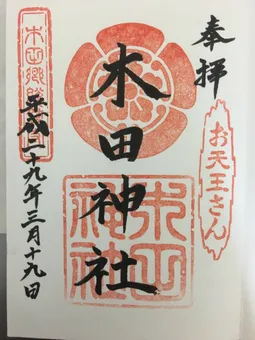 奉拝
お天王さん
木田神社
木田神社
平成二十九年三月十九日